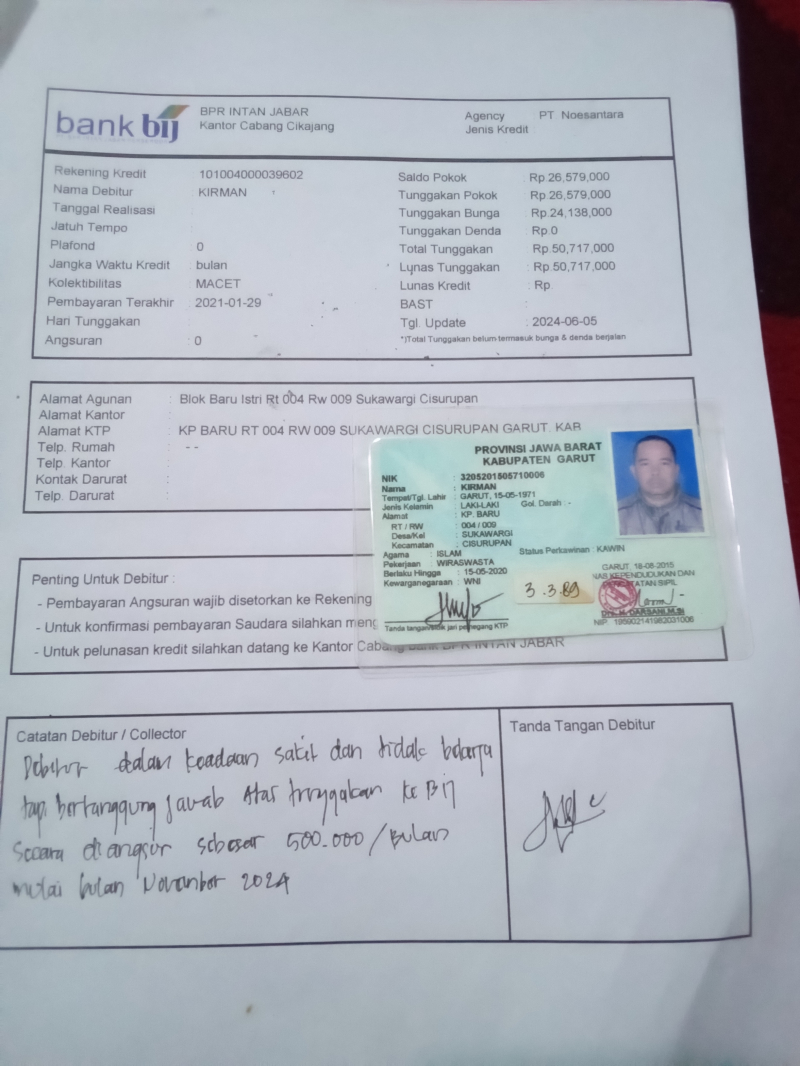 bank bij
BPR INTAN JABAR
Kantor Cabang Cikajang
Agency PT Noesantara
Jenis Kredit
Rekening Kredit 101004000039602
Nama Debitur : KIRMAN
Tanggal Realisasi :
Jatuh Tempo :
Plafond : 0
Jangka Waktu Kredit : bulan
Kolektibilitas : MACET
Pembayaran Terakhir : 2021-01-29
Hari Tunggakan :
Angsuran : 0
Saldo Pokok : Rp.26,579,000
Tunggakan Pokok : Rp.26,579,000
Tunggakan Bunga : Rp.24,138,000
Tunggakan Denda : Rp.0
Total Tunggakan : Rp.50,717,000
Lunas Tunggakan : Rp.50,717,000
Lunas Kredit : Rp.
BAST :
Tgl. Update : 2024-06-05
*)Total Tunggakan belum termasuk bunga & denda berjalan
Alamat Agunan : Blok Baru Istri Rt 004 Rw 009 Sukawargi Cisurupan
Alamat Kantor :
Alamat KTP : KP BARU RT 004 RW 009 SUKAWARGI CISURUPAN GARUT. KAB
Telp. Rumah : - -
Telp. Kantor :
Kontak Darurat :
Telp. Darurat :
PROVINSI JAWA BARAT
KABUPATEN GARUT
NIK : 3205201505710006
Nama : KIRMAN
Tempat/Tgl. Lahir : GARUT, 15-05-1971
Jenis Kelamin : LAKI-LAKI Gol. Darah : -
Alamat : KP. BARU
RT / RW : 004 / 009
Desa/Kel : SUKAWARGI
Kecamatan : CISURUPAN
Agama : ISLAM
Status Perkawinan : KAWIN
Pekerjaan : WIRASWASTA
Berlaku Hingga : 15-05-2020
Kewarganegaraan : WNI
3.3.89
GARUT, 18-08-2015
KEPENDUDUKAN DAN
SIPIL
NIP. 195902141982031006
Tanda tangan jari pemegang KTP
Penting Untuk Debitur :
- Pembayaran Angsuran wajib disetorkan ke Rekening
- Untuk konfirmasi pembayaran Saudara silahkan meng
- Untuk pelunasan kredit silahkan datang ke Kantor Cabang Bank BPR INTAN JABAR
Catatan Debitur / Collector
Debitur dalam keadaan sakit dan tidak
tapi bertanggung jawab Atas tunggakan ke Bij
Secara di angsur sebesar 500.000 / Bulan
mulai bulan November 2024
Tanda Tangan Debitur